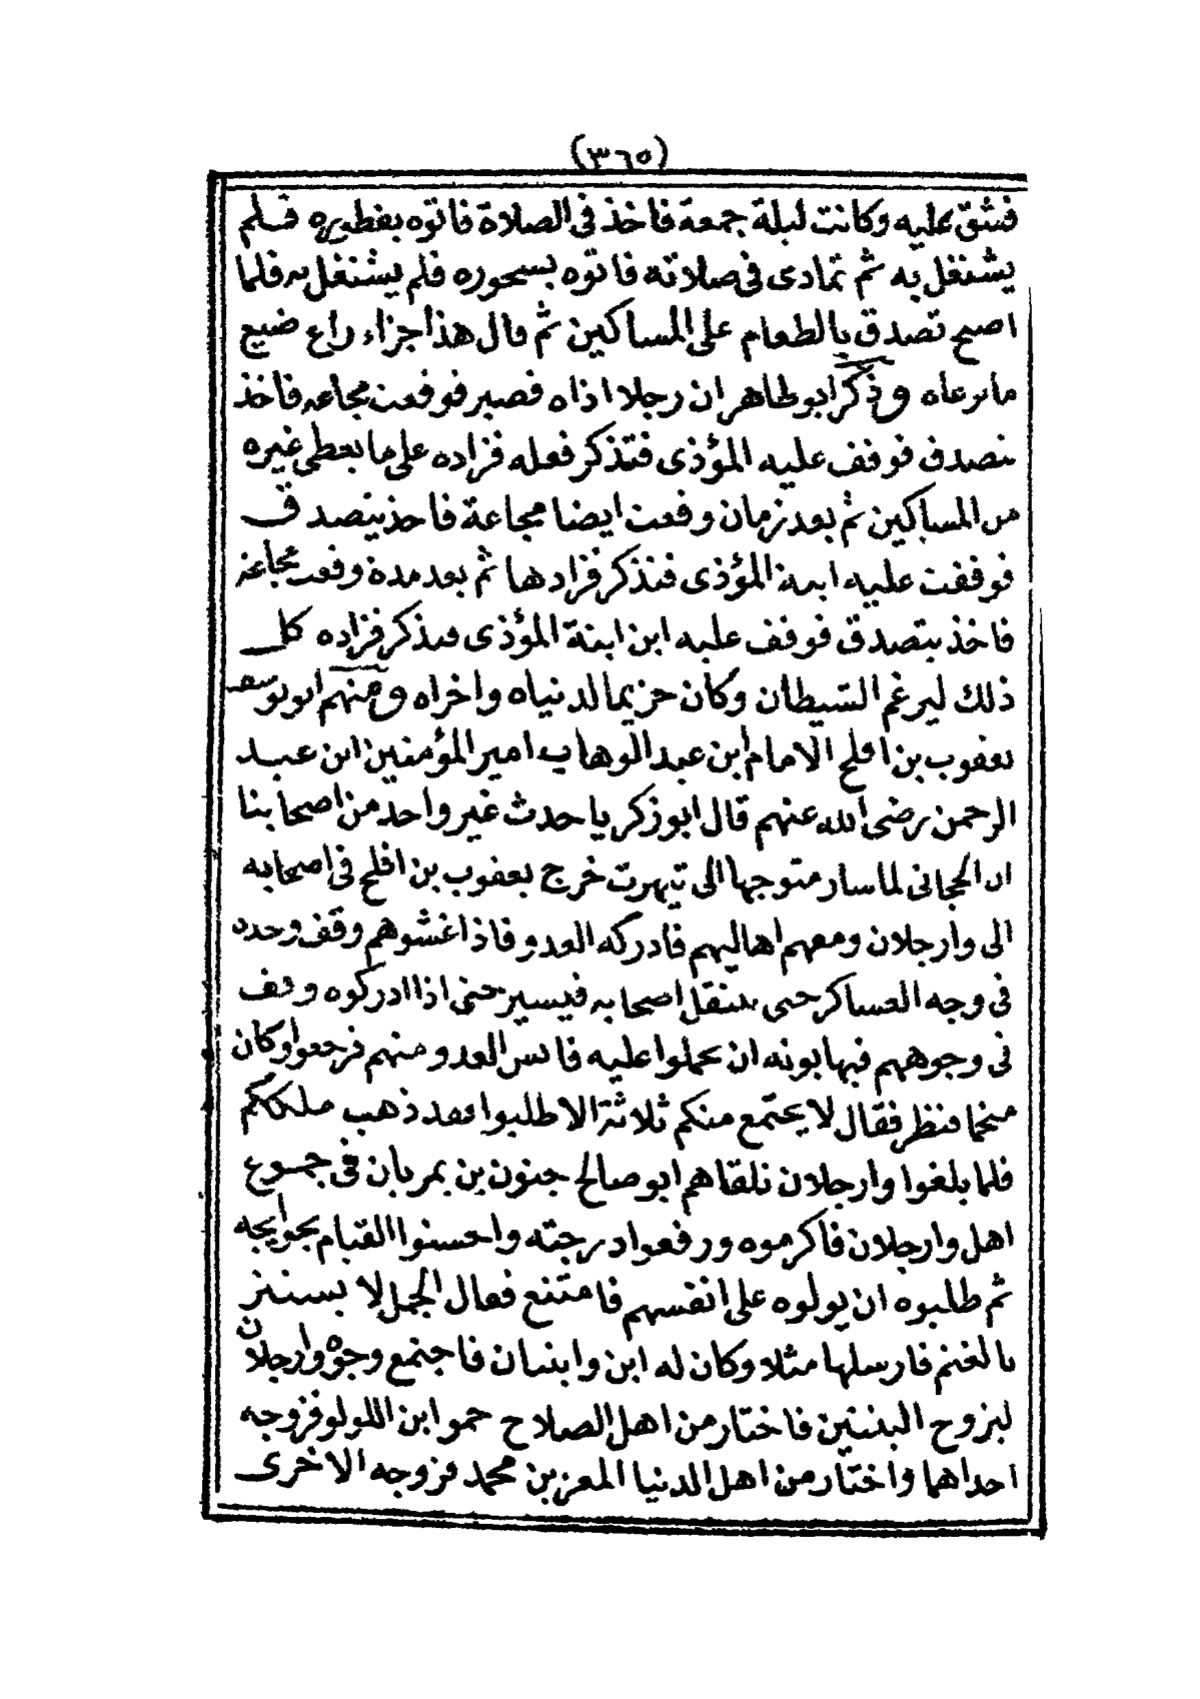 (٣٦٥)
فشق عليه وكانت ليلة جمعة فاخذ فى الصلاة فاتوه بفطيره فلم
يشتغل به ثم تمادى فى صلاته فاتوه بسحوره فلم يشتغل به فلما
اصبح تصدق بالطعام على المساكين ثم قال هذا جزاء راع ضيع
ما رعاه وذكر ابو طاهر ان رجلا اذاه فصبر فوقعت مجاعه فاخذ
يتصدق فوقف عليه المؤذى فتذكر فعله فزاده على ما يعطى غيره
من المساكين ثم بعد زمان وقعت ايضا مجاعة فاخذ يتصدق
فوقفت عليه ابنة المؤذى فتذكر فزادها ثم بعد مدة وقعت مجاعة
فاخذ يتصدق فوقف عليه ابن ابنة المؤذى فتذكر فزاده كل
ذلك ليرغم الشيطان وكان حزيما لدنياه واخراه ومنهم ابو يوسف
يعقوب بن افلح الامام ابن عبد الوهاب امير المؤمنين ابن عبد
الرحمن رضى الله عنهم قال ابو زكريا حدث غير واحد من اصحابنا
ان الحجانى لما سار متوجها الى تيهرت خرج يعقوب بن افلح فى اصحابه
الى وارجلان ومعهم اهاليهم فادركه العدو فاذا غشوهم وقف وحده
فى وجه العساكر حتى ينتقل اصحابه فيسير حتى اذا ادركوه وقف
فى وجوههم فيهابونه ان يحملوا عليه فايس العدو منهم فرجعوا وكان
منجما فنظر فقال لا يجتمع منكم ثلاثة الا طلبوا فقد ذهب ملككم
فلما بلغوا وارجلان تلقاهم ابو صالح جنون بن يمريان فى جموع
اهل وارجلان فاكرموه ورفعوا درجته واحسنوا القيام بحوايجه
ثم طلبوه ان يولوه على انفسهم فامتنع فقال الجمل لا يستتر
بالغنم فارسلها مثلا وكان له ابن وابنتان فاجتمع وجوه وارجلان
ليزوج البنتين فاختار من اهل الصلاح حمو ابن اللولو فزوجه
احداهما واختار من اهل الدنيا المعز بن محمد فزوجه الاخرى